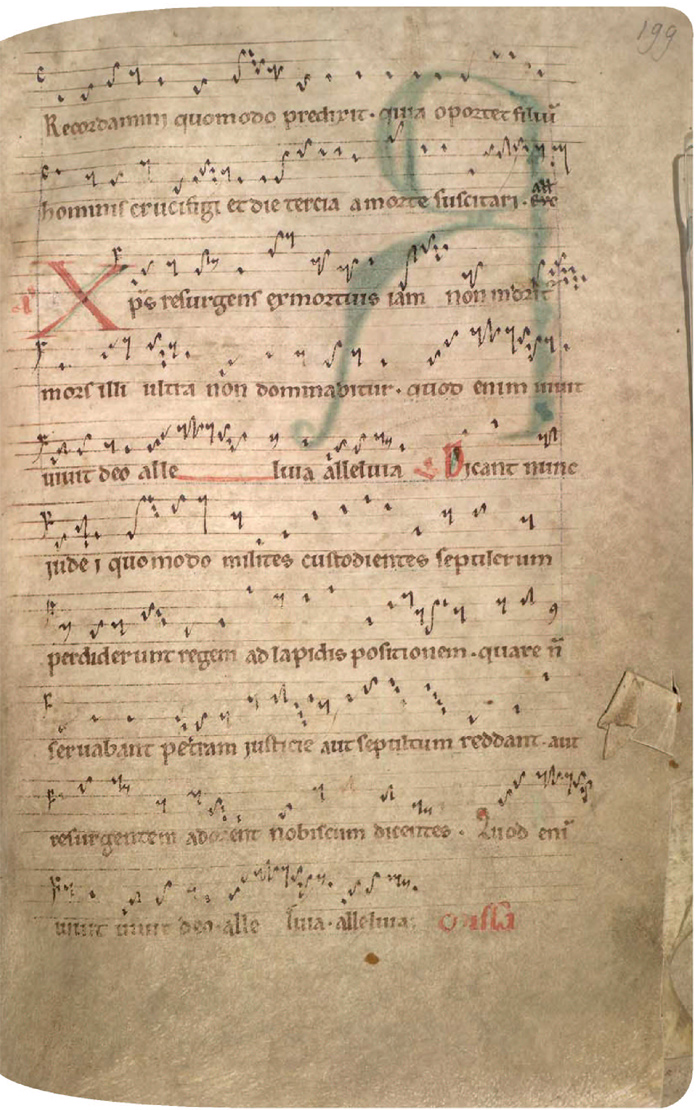 199
Recordamini quomodo predixit · quia oportet filiū
hominis crucifigi et die tercia a morte suscitari ·
Xp̄s resurgens ex mortuis iam non morit
mors illi ultra non dominabitur · quod enim uiuit
uiuit deo alle luia alleluia Dicant nunc
iudei quomodo milites custodientes sepulcrum
perdiderunt regem ad lapidis positionem · quare n̄
seruabant petram iusticie aut sepultum reddant · aut
resurgentem adorent nobiscum dicentes · Quod eni̅
uiuit uiuit deo · alle luia · alleluia